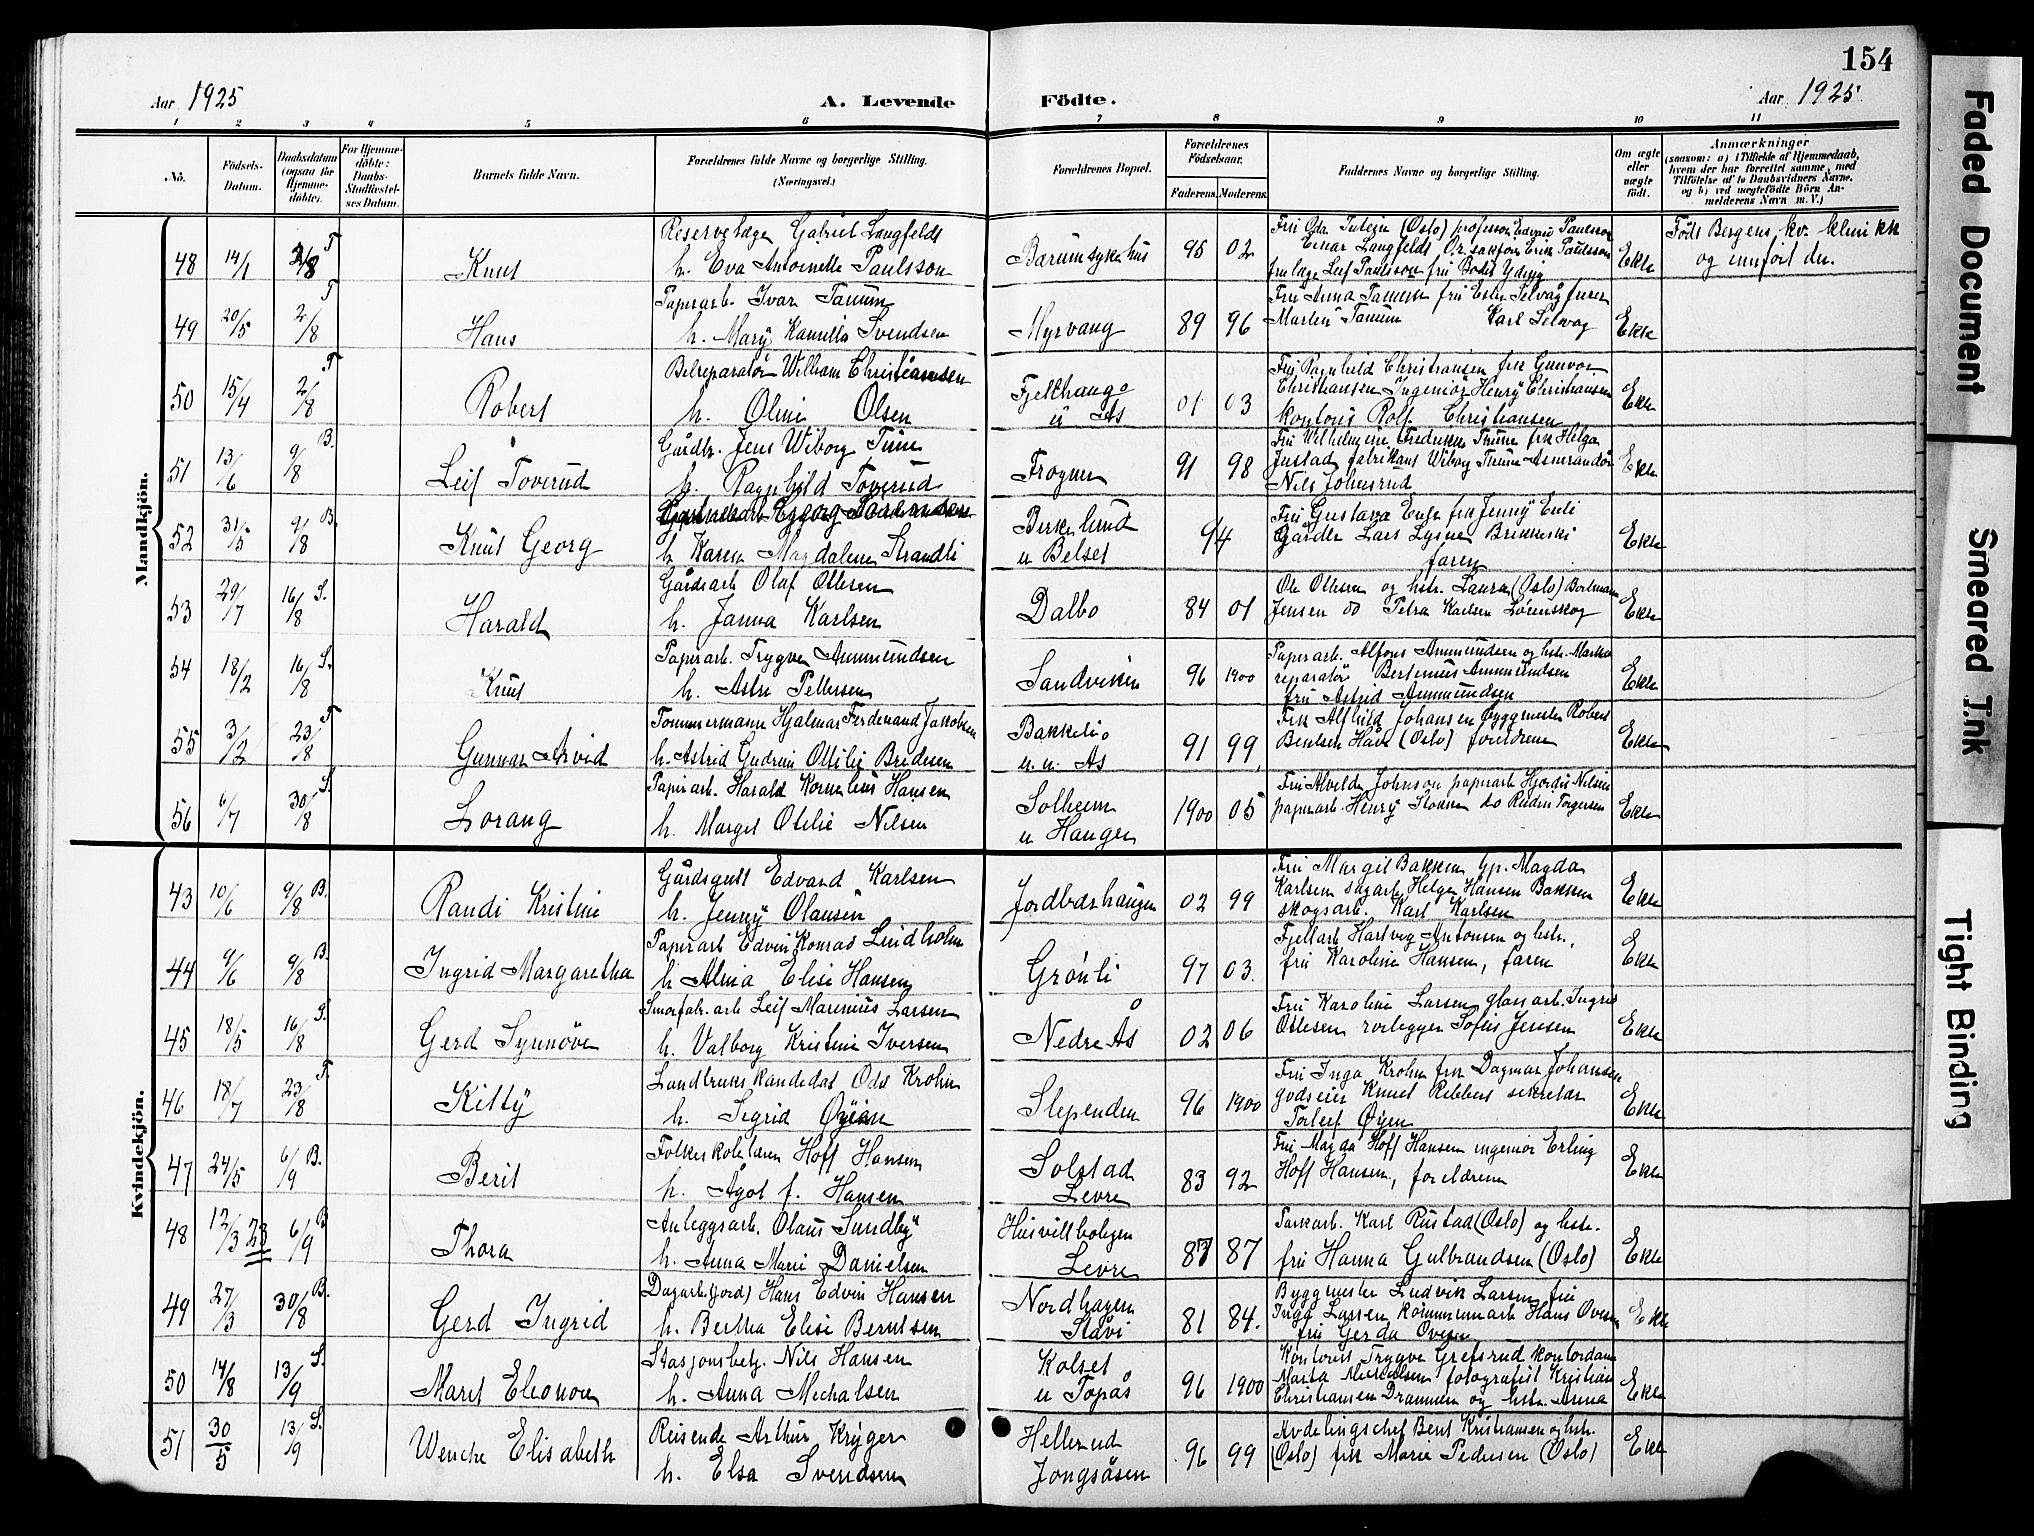 154
Aar 1925
A. Levende Födte.
Aar 1925
1 2 3 4 5 6 7 8 9 10 11
No.
Födsels-Datum.
Daabsdatum (ogsaa for Hjemme-döbte).
For Hjemme-döbte: Daabs-Stadfæstel-ses Datum.
Barnets fulde Navn.
Forældrenes fulde Navne og borgerlige Stilling.
(Næringsvei.)
Forældrenes Bopæl.
Forældrenes Födselsaar.
Faderens. Moderens.
Faddernes Navne og borgerlige Stilling.
Om ægte eller uægte födt.
Anmærkninger
(saasom: a) i Tilfælde af Hjemmedaab, hvem der har forrettet samme, med Tilföielse af to Daabsvidners Navne, og b) ved uægtefödte Börn An-melderens Navn m. V.)
Mandkjön.
48 14/1 2/8 T Knut
Reservelæge Gabriel Langfeldt
h. Eva Antoinette Paulsson
Bærum sykehus 95 02
Einar Langfeldt
Ekte
Født Bergens kv. klinikk
og innført der.
49 20/5 2/8 T Hans
Papirarb. Ivar Tanum
h. Mary Kamilla Svendsen
Myrvang 89 96
Fru Anna Tanum
Martin Tanum Karl Selvag
Ekte
50 15/4 2/8 T Robert
Bilreparatør William Christiansen
h. Oline Olsen
Fjelthaug
u Ås
01 03
Fru Ragnhild Christiansen frk Gunvor
Christiansen Ingeniør Henry Christiansen
kontoris Rolf Christiansen
Ekte
51 13/6 9/8 B. Leif Toverud
Gårdbr. Jens Wiborg
h. Ragnhild Toverud
Frogner 91 98
Fru Wilhelmine Fredrikke frk Helga
Nils Johnsrud
Ekte
52 31/5 9/8 B. Knut Georg
h Karen Magdalene Strandli
Birkelund
u Belset
94
Fru Gustava
faren
Ekte
53 29/7 16/8 S. Harald
Gårdsarb Olaf Ottesen
h. Janna Karlsen
Dalbo 84 01
Ole Ottesen og hstr. Laura (Oslo)
Jensen do Petra Karlsen Lørenskog
Ekte
54 18/2 16/8 S. Knut
Papirarb. Trygve Ammundsen
h. Astri Pettersen
Sandviken 96 1900
Papirarb. Alfons Ammundsen og hstr.
reparatør Bertinius Ammundsen
fru Astrid Ammundsen
Ekte
55 3/12 23/8 T Gunnar Arvid
Tømmermann Hjalmar Ferdinand Jakobsen
h. Astrid Gudrun Ottilie Bredesen
Bakkeli
u. n. Ås
91 99
Frk Alfhild Johansen byggmester Robert
Bentsen (Oslo) foreldrene
Ekte
56 6/7 30/8 S. Lorang
Papirarb. Harald Kornelius Hansen
h. Margit Otilie Nilsen
Solheim
u Haugen
1900 05
Fru Alvilde Johnson papirarb Hjørdis Nilsen
papirarb Henry do Torgersen
Ekte
Kvindekjön.
43 10/6 9/8 B. Randi Kristine
Gårdsgutt Edvard Karlsen
h. Jenny Olausen
Jordbærhaugen 02 99
Fru Margit Bakken Gp. Magda
Karlsen sagarb Helge Hansen Bakken
skogsarb. Karl Karlsen
Ekte
44 9/6 9/8 B. Ingrid Margaretha
Papirarb Edvin Konrad Lindholm
h Alma Elise Hansen
Grønli 97 03.
Fjellarb Hartvig Antonsen og hstr.,
fru Karoline Hansen, faren
Ekte
45 18/5 16/8 S. Gerd Synnøve
Smørfabr. arb Leif Marinius Larsen
h. Valborg Kristine Iversen
Nedre Ås 02 06
Fru Karoline Larsen glassarb. Ingrid
Ottesen rørlegger Sofus Jensen
Ekte
46 18/7 23/8 T. Kitty
Landbrukskandidat Odd Krohn
h. Sigrid Øyen
Slependen 96 1900
Fru Inga Krohn frk Dagmar Johansen
godseier Knut Ribbert sekretær
Torleif Øyen
Ekte
47 24/5 6/9 B. Berit
Folkeskolelærer Hoff Hansen
h. Ågot f. Hansen
Solstad
Levre
83 92
Fru Magda Hoff Hansen ingeniør Erling
Hoff Hansen, foreldrene
Ekte
48 12/3 23 6/9 B Thora
Anleggsarb. Olaus Sundby
h. Anna Marie Danielsen
Husvillboligen
Levre
87 87
Karl Rustad (Oslo) og hstr.
fru Hanna Gulbrandsen (Oslo)
Ekte
49 27/3 30/8 B. Gerd Ingrid
Dagarb. (jord) Hans Edvin Hansen
h. Bertha Elise Berntsen
Nordhagen
Stavi
81 84.
Byggmester Ludvik Larsen fru
Inga Larsen kommunearb Hans Oversen
fru Gerda Oversen
Ekte
50 14/8 13/9 S. Maret Eleonore
Stasjonsbetj. Nils Hansen
h. Anna Michalsen
Kolset
u Topås
96 1900
Kontorist Trygve Grefsrud kontordame
Marta Michalsen fotografist Kristian
Christiansen Drammen og hstr. Anna
Ekte
51 30/5 13/9 S. Wenche Elisabeth
Reisende Arthur Krÿger
h. Elsa Svendsen
Hellerud
Jongsåsen
96 99
Avdelingschef Bent Kristiansen og hstr.
(Oslo) frk Marie Pedersen (Oslo)
Ekte
Faded Document
Smeared Ink
Tight Binding